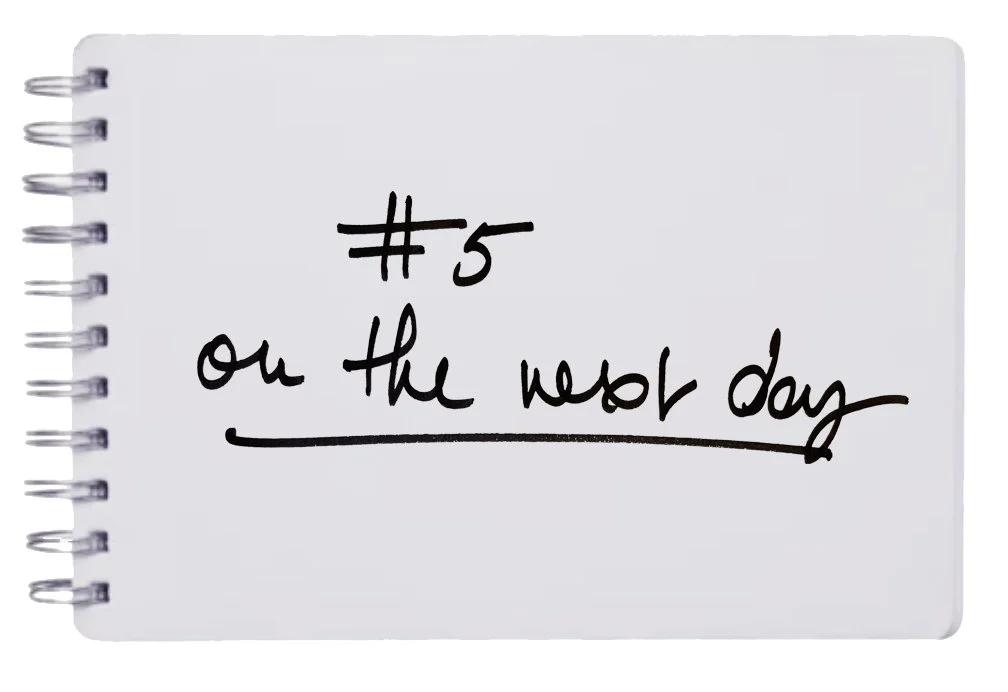 #5
on the next day